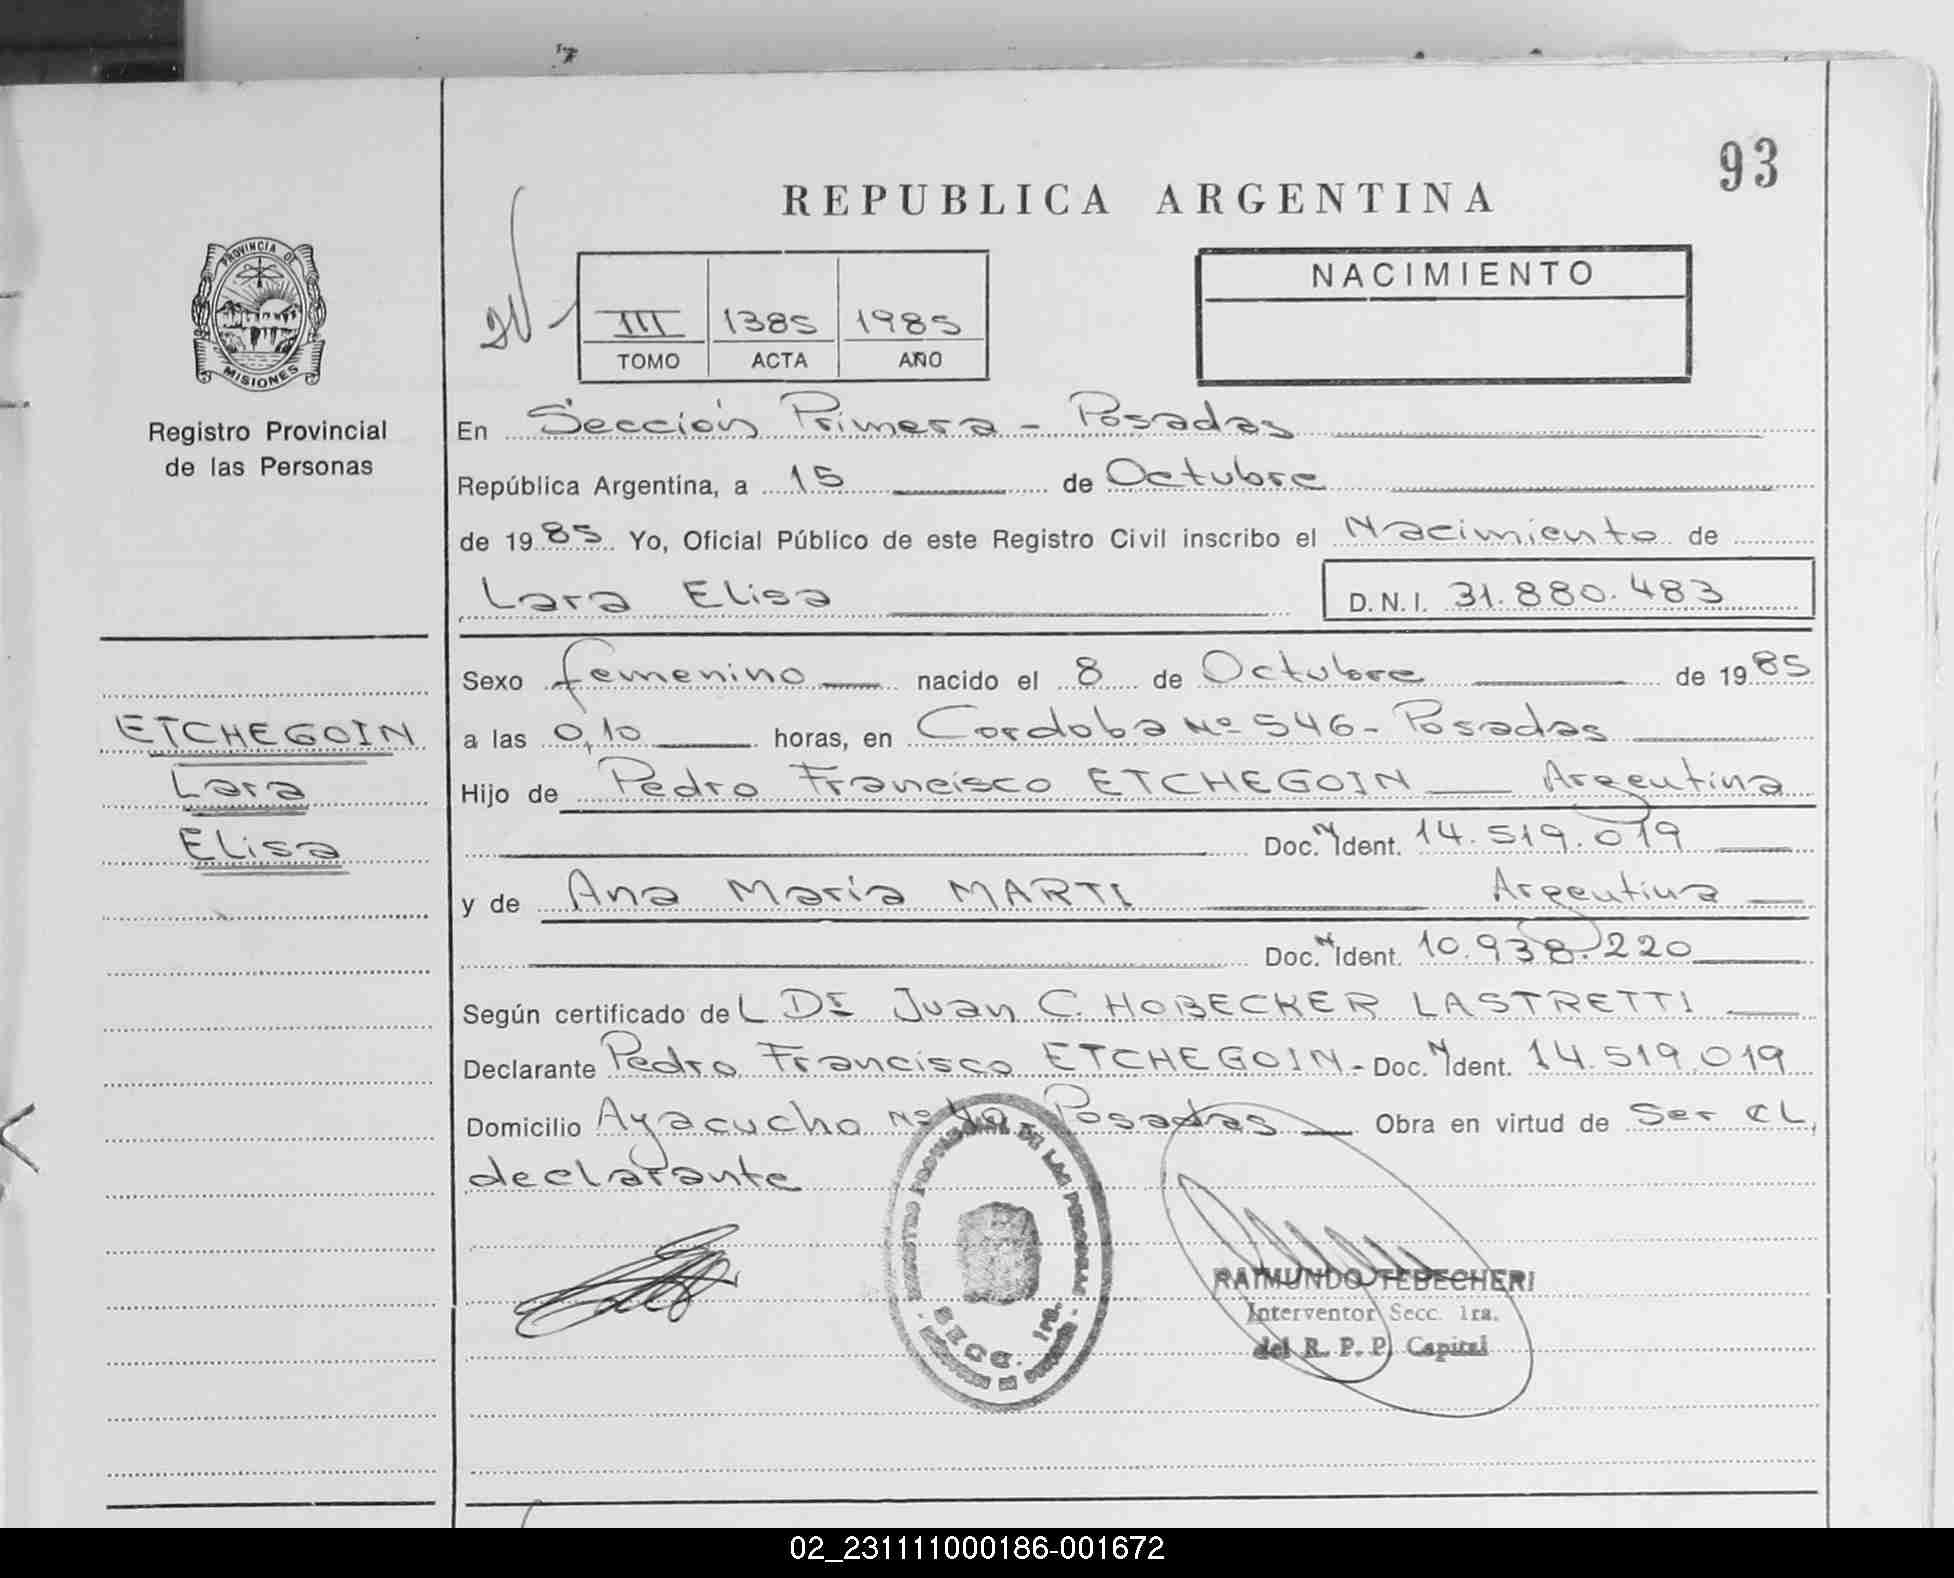 93
REPUBLICA ARGENTINA
PROVINCIA DE
MISIONES
Registro Provincial
de las Personas
III 1385 1985
TOMO ACTA AÑO
NACIMIENTO
En Sección Primera - Posadas
República Argentina, a 15 de Octubre
de 1985 Yo, Oficial Público de este Registro Civil inscribo el Nacimiento de
Lara Elisa D.N.I. 31.880.483
Sexo femenino nacido el 8 de Octubre de 1985
ETCHEGOIN
Lara
Elisa
a las 0,10 horas, en Cordoba Nº 546 - Posadas
Hijo de Pedro Francisco ETCHEGOIN Argentina
Doc. N Ident. 14.519.019
y de Ana María MARTI Argentina
Doc. N Ident. 10.938.220
Según certificado de L Dr Juan C. HOBECKER LASTRETTI
Declarante Pedro Francisco ETCHEGOIN - Doc. N Ident. 14.519.019
Domicilio Ayacucho Nº Posadas Obra en virtud de Ser el
declarante
REGISTRO PROVINCIAL DE LAS PERSONAS
SECC. 1ra.
RAIMUNDO TEBECHERI
Interventor Secc. 1ra.
del R. P. P. Capital
02_231111000186-001672